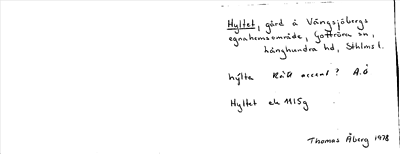 Hyltet, gård å Vängsjöbergs
egnahemsområde, Gottröra sn,
Långhundra hd, Sthlms l.
hylta Rätt accent? A.Ö
Hyltet ek 11I5g
Thomas Åberg 1978